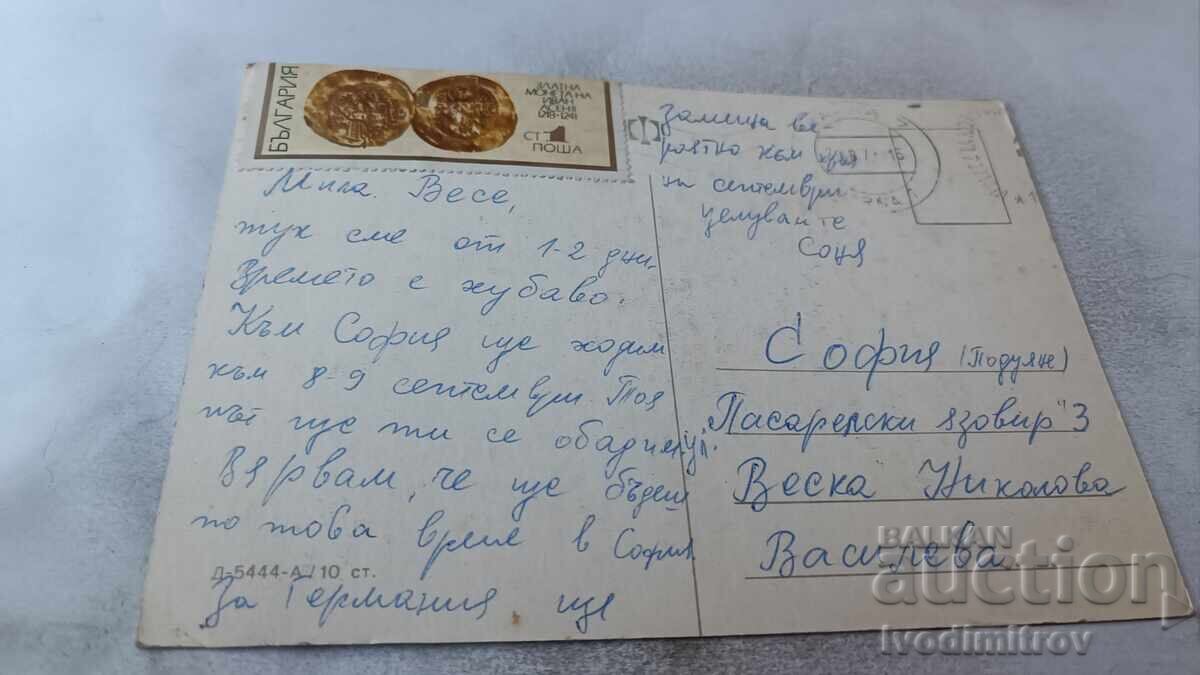 БЪЛГАРИЯ
ЗЛАТНА
МОНЕТА НА
ИВАН
АСЕН II
1218-1241
СТ 1
ПОЩА
Мила Весе,
тук сме от 1-2 дни.
Времето е хубаво.
Към София ще ходим
към 8-9 септември. Тоя
път ще ти се обадим.
Вярвам, че ще бъдеш
по това време в София
Д-5444-А / 10 ст.
За Германия ще
замина ве-
роятно към края
на септември
Целувам те
Соня
София (Подуяне)
ул. "Пасарелски язовир" 3
Веска Николова
Василева
BALKAN
auction
Ivodimitrov